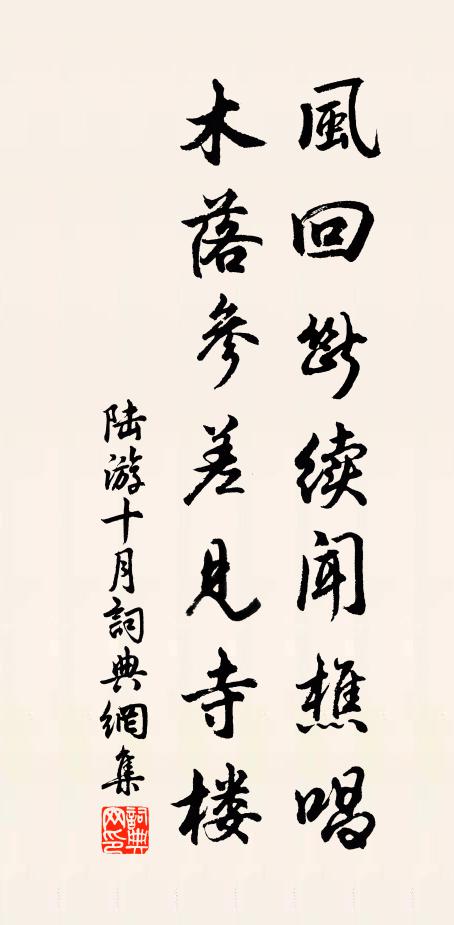 風回斷續聞樵唱
木落參差見寺楼
陆游十月詞典網集
詞典网印